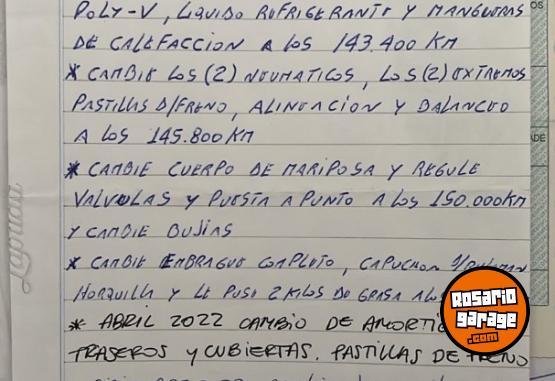 POLY-V, LIQUIDO REFRIGERANTE Y MANGUERAS
DE CALEFACCION A LOS 143.400 KM
* CAMBIE LOS (2) NEUMATICOS, LOS (2) EXTREMOS
PASTILLAS D/FRENO, ALINEACION Y BALANCEO
A LOS 145.800 KM
* CAMBIE CUERPO DE MARIPOSA Y REGULE
VALVULAS Y PUESTA A PUNTO A LOS 150.000KM
Y CAMBIE BUJIAS
* CAMBIE EMBRAGUE COMPLETO, CAPUCHON
HORQUILLA Y LE PUSE 2 KILOS DE GRASA A LOS
* ABRIL 2022 CAMBIO DE
TRASEROS Y CUBIERTAS. PASTILLAS DE FRENO
Rosario
garage
.com
Lapidus
OS
ADE